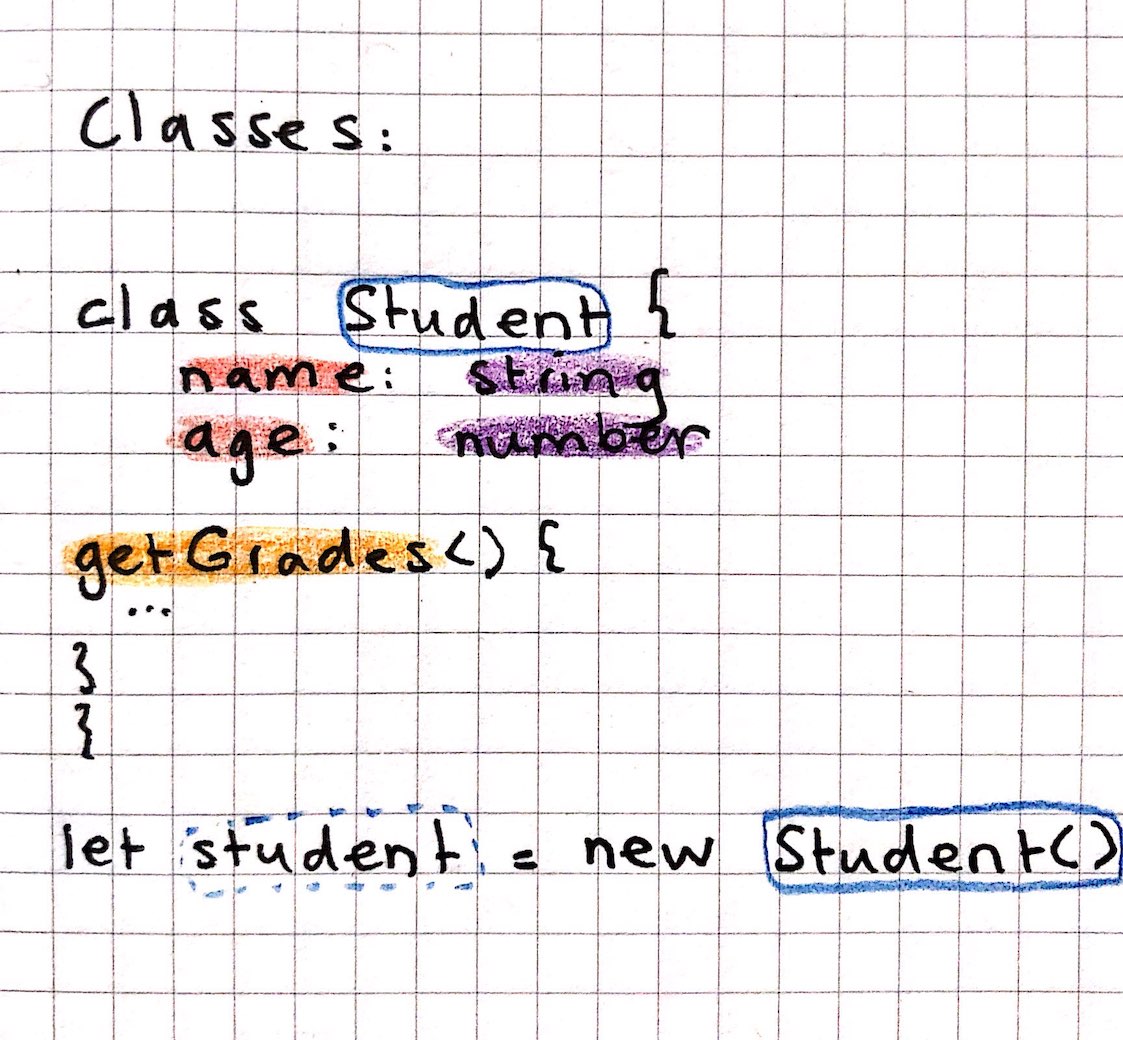 Classes:
class Student {
name: string
age: number
getGrades() {
...
}
}
let student = new Student()